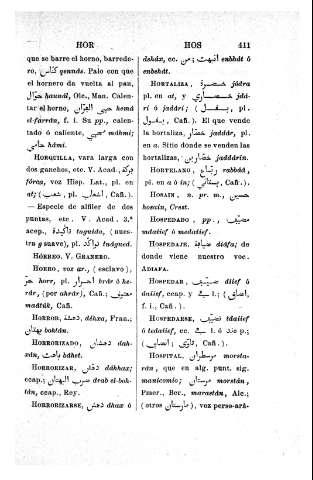 HOR
HOS
411
que se barre el horno, barredero,
كنّاس quennás. Palo con que
el hornero da vuelta al pan,
Olc., Man. Calentar
el horno,
el-farrán, f. i. Su pp., calentado
ó caliente, محمي máhmi;
حامي hámi.
HORQUILLA, vara larga con
dos ganchos, etc. V. Acad.
fórca, voz Hisp. Lat., pl. en
at; شعب, pl. اشعاب, Cañ.
— Especie de alfiler de dos
puntas, etc. V. Acad. 3.ª
acep.,
tra g suave), pl.
HÓRREO. V. GRANERO.
HORRO, voz ar., (esclavo),
حر horr, pl. احرار
Cañ.;
Cañ.
HORROR, Fran.;
بهتان bohtán.
HORRORIZADO, دهشان dahxán,
باهت báhet.
HORROIZAR, دهّش dáhhax;
ccap.; ضرب البهتان drab el-bohtán,
ccap., Rey.
HORRORIZARSE, دهش dhax ó
dxháx, cc. من; انبهت enbhát ó
enbehát.
HORTALIZA, خضرة jádra
pl. en at, y خضاري jdári
ó jaddri; (بقل, pl.
بقول, Cañ.). El que vende
la hortaliza, خضّار jaddár, pl.
en a. Sitio donde se venden las
hortalizas, خضّارين jaddárin.
HORTELANO, ربّاع rabbád,
pl. en a ó in; (بستاني, Cañ.).
HOSAIN, n. pr. m., حسين
hosain, Crest.
HOSPEDADO, pp., مضيّف
mdaiief ó modaiief.
HOSPEDAJE, ضيافة diáfa; de
donde viene nuestro voc.
ADIAFA.
HOSPEDAR, ضيّف diief ó
daiief, ccap. y ل; (اضاف,
f. i., Cañ.).
HOSPEDARSE, تضيّف tdaiief
ó tedaiief, cc. ل ó عند p.;
Cañ.
HOSPITAL, مرسطران morstarán,
que en alg. punt. sig.
manicomio; مرستان morstán,
Pmer., Ber., marastán, Alc.;
(otros مارستان), voz perso-ará-